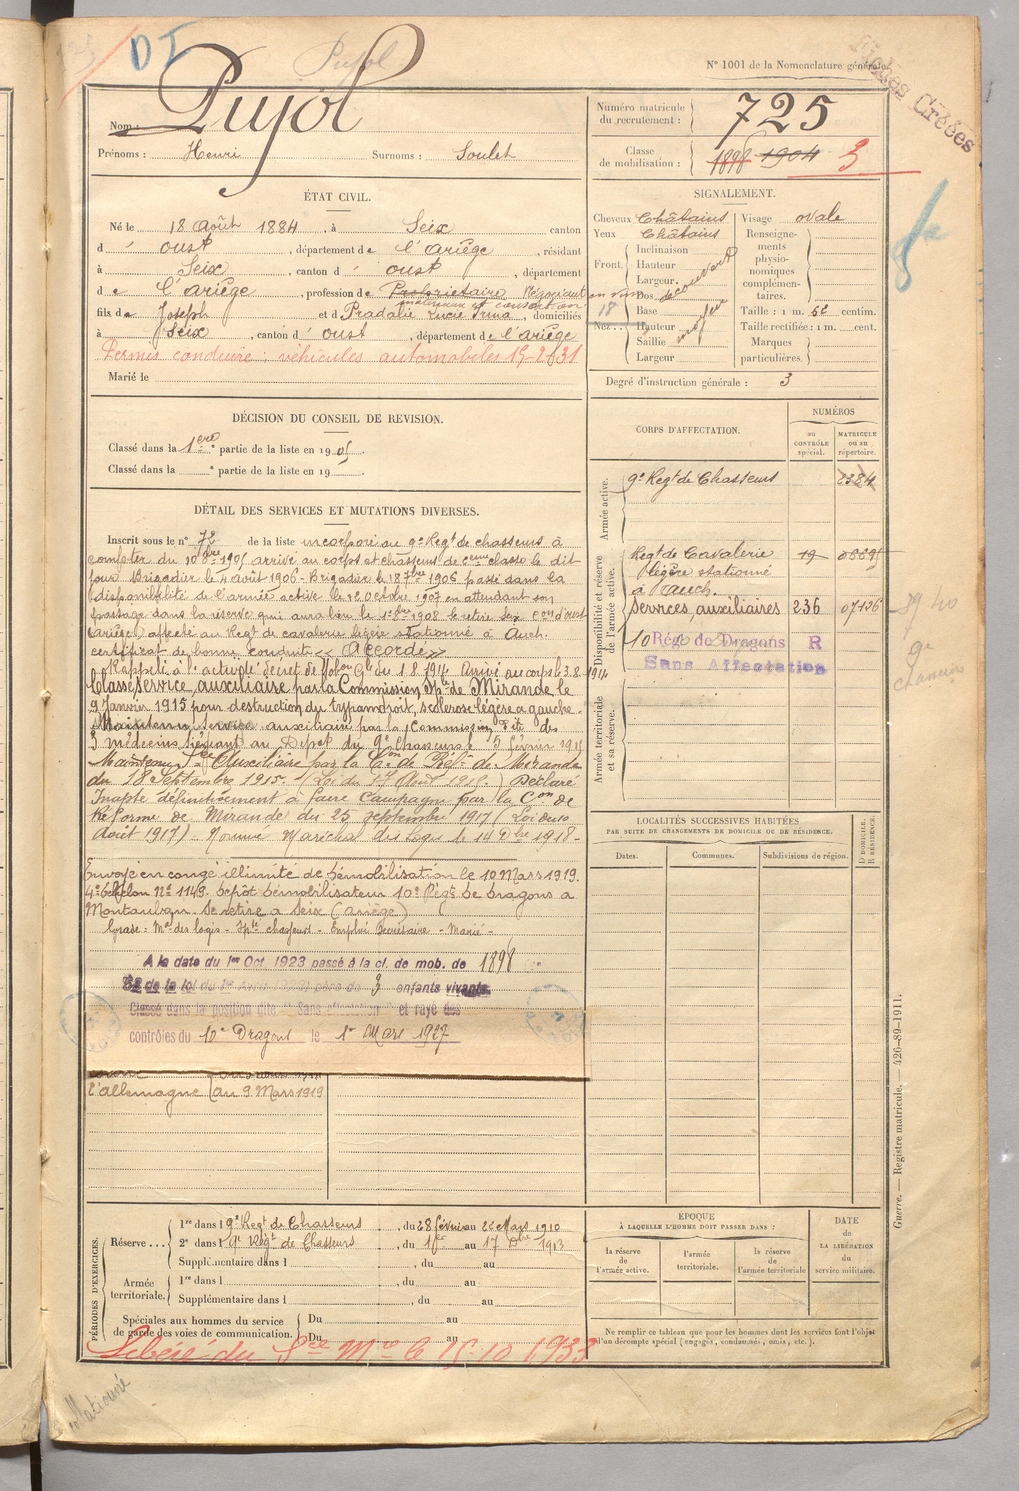 DI
Pujol
N° 1001 de la Nomenclature générale.
Radiés Créées
Nom : Pujol
Prénoms : Henri Surnoms : Soulet
Numéro matricule du recrutement : 725
Classe de mobilisation : 1898 1904 3
ÉTAT CIVIL.
Né le 18 Août 1884, à Seix canton
d' oust, département de l'ariège, résidant
à Seix, canton d' oust, département
de l'ariège, profession de Propriétaire Négociant en vins
matériaux de construction
fils de Joseph et d Pradalié Lucie Irma, domiciliés
à Seix, canton d' oust, département de l'ariège
Permis conduire : véhicules automobiles 15-2-31
Marié le
SIGNALEMENT.
Cheveux Châtains
Yeux Châtains
Front. Inclinaison
Hauteur
Largeur
découvert
Nez. Dos
Base
Hauteur
Saillie
Largeur
moyen
18
Visage ovale
Renseignements physionomiques complémentaires.
Taille : 1 m. 52 centim.
Taille rectifiée : 1 m. cent.
Marques particulières.
Degré d'instruction générale : 3
DÉCISION DU CONSEIL DE REVISION.
Classé dans la 1ère partie de la liste en 1905.
Classé dans la e partie de la liste en 19
CORPS D'AFFECTATION.
NUMÉROS
AU CONTRÔLE spécial.
MATRICULE OU AU répertoire.
Armée active.
9e Regt de Chasseurs 2384
Disponibilité et réserve de l'armée active.
Regt de Cavalerie 19 06695
légère stationné
à Auch.
Services auxiliaires 236 07136
10 Régt de Dragons R
Sans Affectation
39 40
9e
chasseurs
Armée territoriale et sa réserve.
DÉTAIL DES SERVICES ET MUTATIONS DIVERSES.
Inscrit sous le n° 72 de la liste incorporé au 9e Regt de chasseurs à
compter du 10 8bre 1905 arrivé au corps et chasseur de 2eme classe le dit
jour Brigadier le 4 août 1906 - Brigadier le 18 7bre 1906 passé dans la
disponibilité de l'armée active le 12 octobre 1907 en attendant son
passage dans la réserve qui aura lieu le 1er 8bre 1908
(ariège) affecté au Regt de cavalerie légère stationné à Auch.
certificat de bonne conduite « Accordé »
Rappelé à l'activité décret de Mobon Gle du 1.8.1914 Arrivé au corps le 3.8.1914
Classé service auxiliaire par la Commission Sple de Mirande, le
9 Janvier 1915 pour destruction du tympan droit, sclérose légère à gauche.
Maintenu service auxiliaire par la Commission des
3 médecins siégeant au Dépôt du 9e Chasseurs le 5 février 1915
Maintenu Sce Auxiliaire par la Con de Refe de Mirande
du 18 Septembre 1915. (Loi du 17 Août 1915.) Déclaré
Inapte définitivement à faire campagne par la Con de
Réforme de Mirande du 25 septembre 1917 (Loi du 10
août 1917). Nommé Maréchal des Logis le 14 Dbre 1918 -
Envoyé en congé illimité de démobilisation le 10 Mars 1919.
4e échelon No 1149. Dépôt démobilisateur 10e Régt de dragons a
Montauban. Se retire a Seix (ariège)
Grade : Mal des logis - Spté chasseurs - Emploi Secrétaire - Marié -
A la date du 1er Oct 1923 passé à la cl. de mob. de 1898
52 de la loi du 1er Avril 1923 père de 3 enfants vivants.
Classé dans la position dite "Sans affectation" et rayé des
contrôles du 10e Dragons le 1er Mars 1927
l'allemagne au 9 Mars 1919
LOCALITÉS SUCCESSIVES HABITÉES
PAR SUITE DE CHANGEMENTS DE DOMICILE OU DE RÉSIDENCE.
D DOMICILE. R RÉSIDENCE.
Dates. Communes. Subdivisions de région.
PÉRIODES D'EXERCICES.
Réserve... 1re dans l 9e Regt de Chasseurs, du 28 février au 22 Mars 1910
2e dans l 9e Regt de Chasseurs, du 1er au 17 Dbre 1913
Supplémentaire dans l, du au
Armée territoriale. 1re dans l, du au
Supplémentaire dans l, du au
Spéciales aux hommes du service de garde des voies de communication. Du au
Du au
Libéré du Sce Mre le 15 10 1933
ÉPOQUE
À LAQUELLE L'HOMME DOIT PASSER DANS :
la réserve de l'armée active.
l'armée territoriale.
la réserve de l'armée territoriale
DATE de LA LIBÉRATION du service militaire.
Ne remplir ce tableau que pour les hommes dont les services font l'objet
d'un décompte spécial (engagés, condamnés, omis, etc.).
Guerre. — Registre matricule. — 426-89-1911.